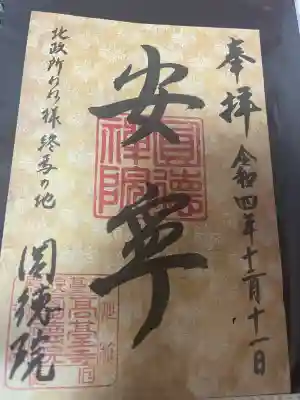 奉拝
令和四年十二月十一日
安寧
圓德
禅院
北政所ねね様終焉の地
圓徳院
高臺寺